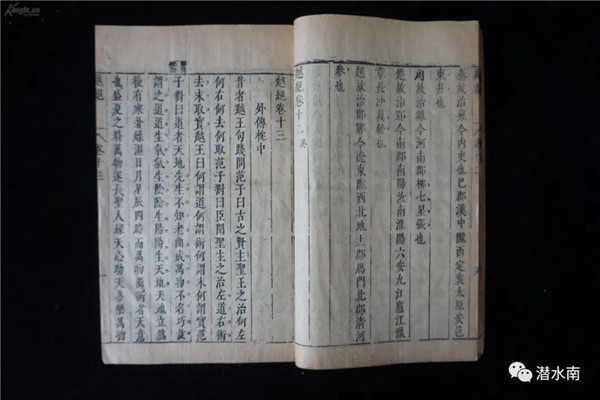 秦故治雍今內史也巴郡漢中隴西定襄太原安邑
東井也
周故治雒今河南郡柳七星張也
楚故治郢今南郡南陽汝南淮陽六安九江廬江豫
章長沙翼軫也
趙故治邯鄲今遼東隴西北地上郡鴈門北郡清河
參也
越絕卷十二
越絕卷十三
外傳枕中
昔者越王句踐問范子曰古之賢主聖王之治何左
何右何去何取范子對曰臣聞聖主之治左道右術
去末取實越王曰何謂道何謂術何謂末何謂實范
子對曰道者天地先生不知老曲成萬物不名巧故
謂之道道生氣氣生陰陰生陽陽生天地天地立然
後有寒暑燥濕日月星辰四時而萬物備術者天意
也盛夏之時萬物遂長聖人緣天心助天喜樂萬物
越絕 卷十三
潜水南